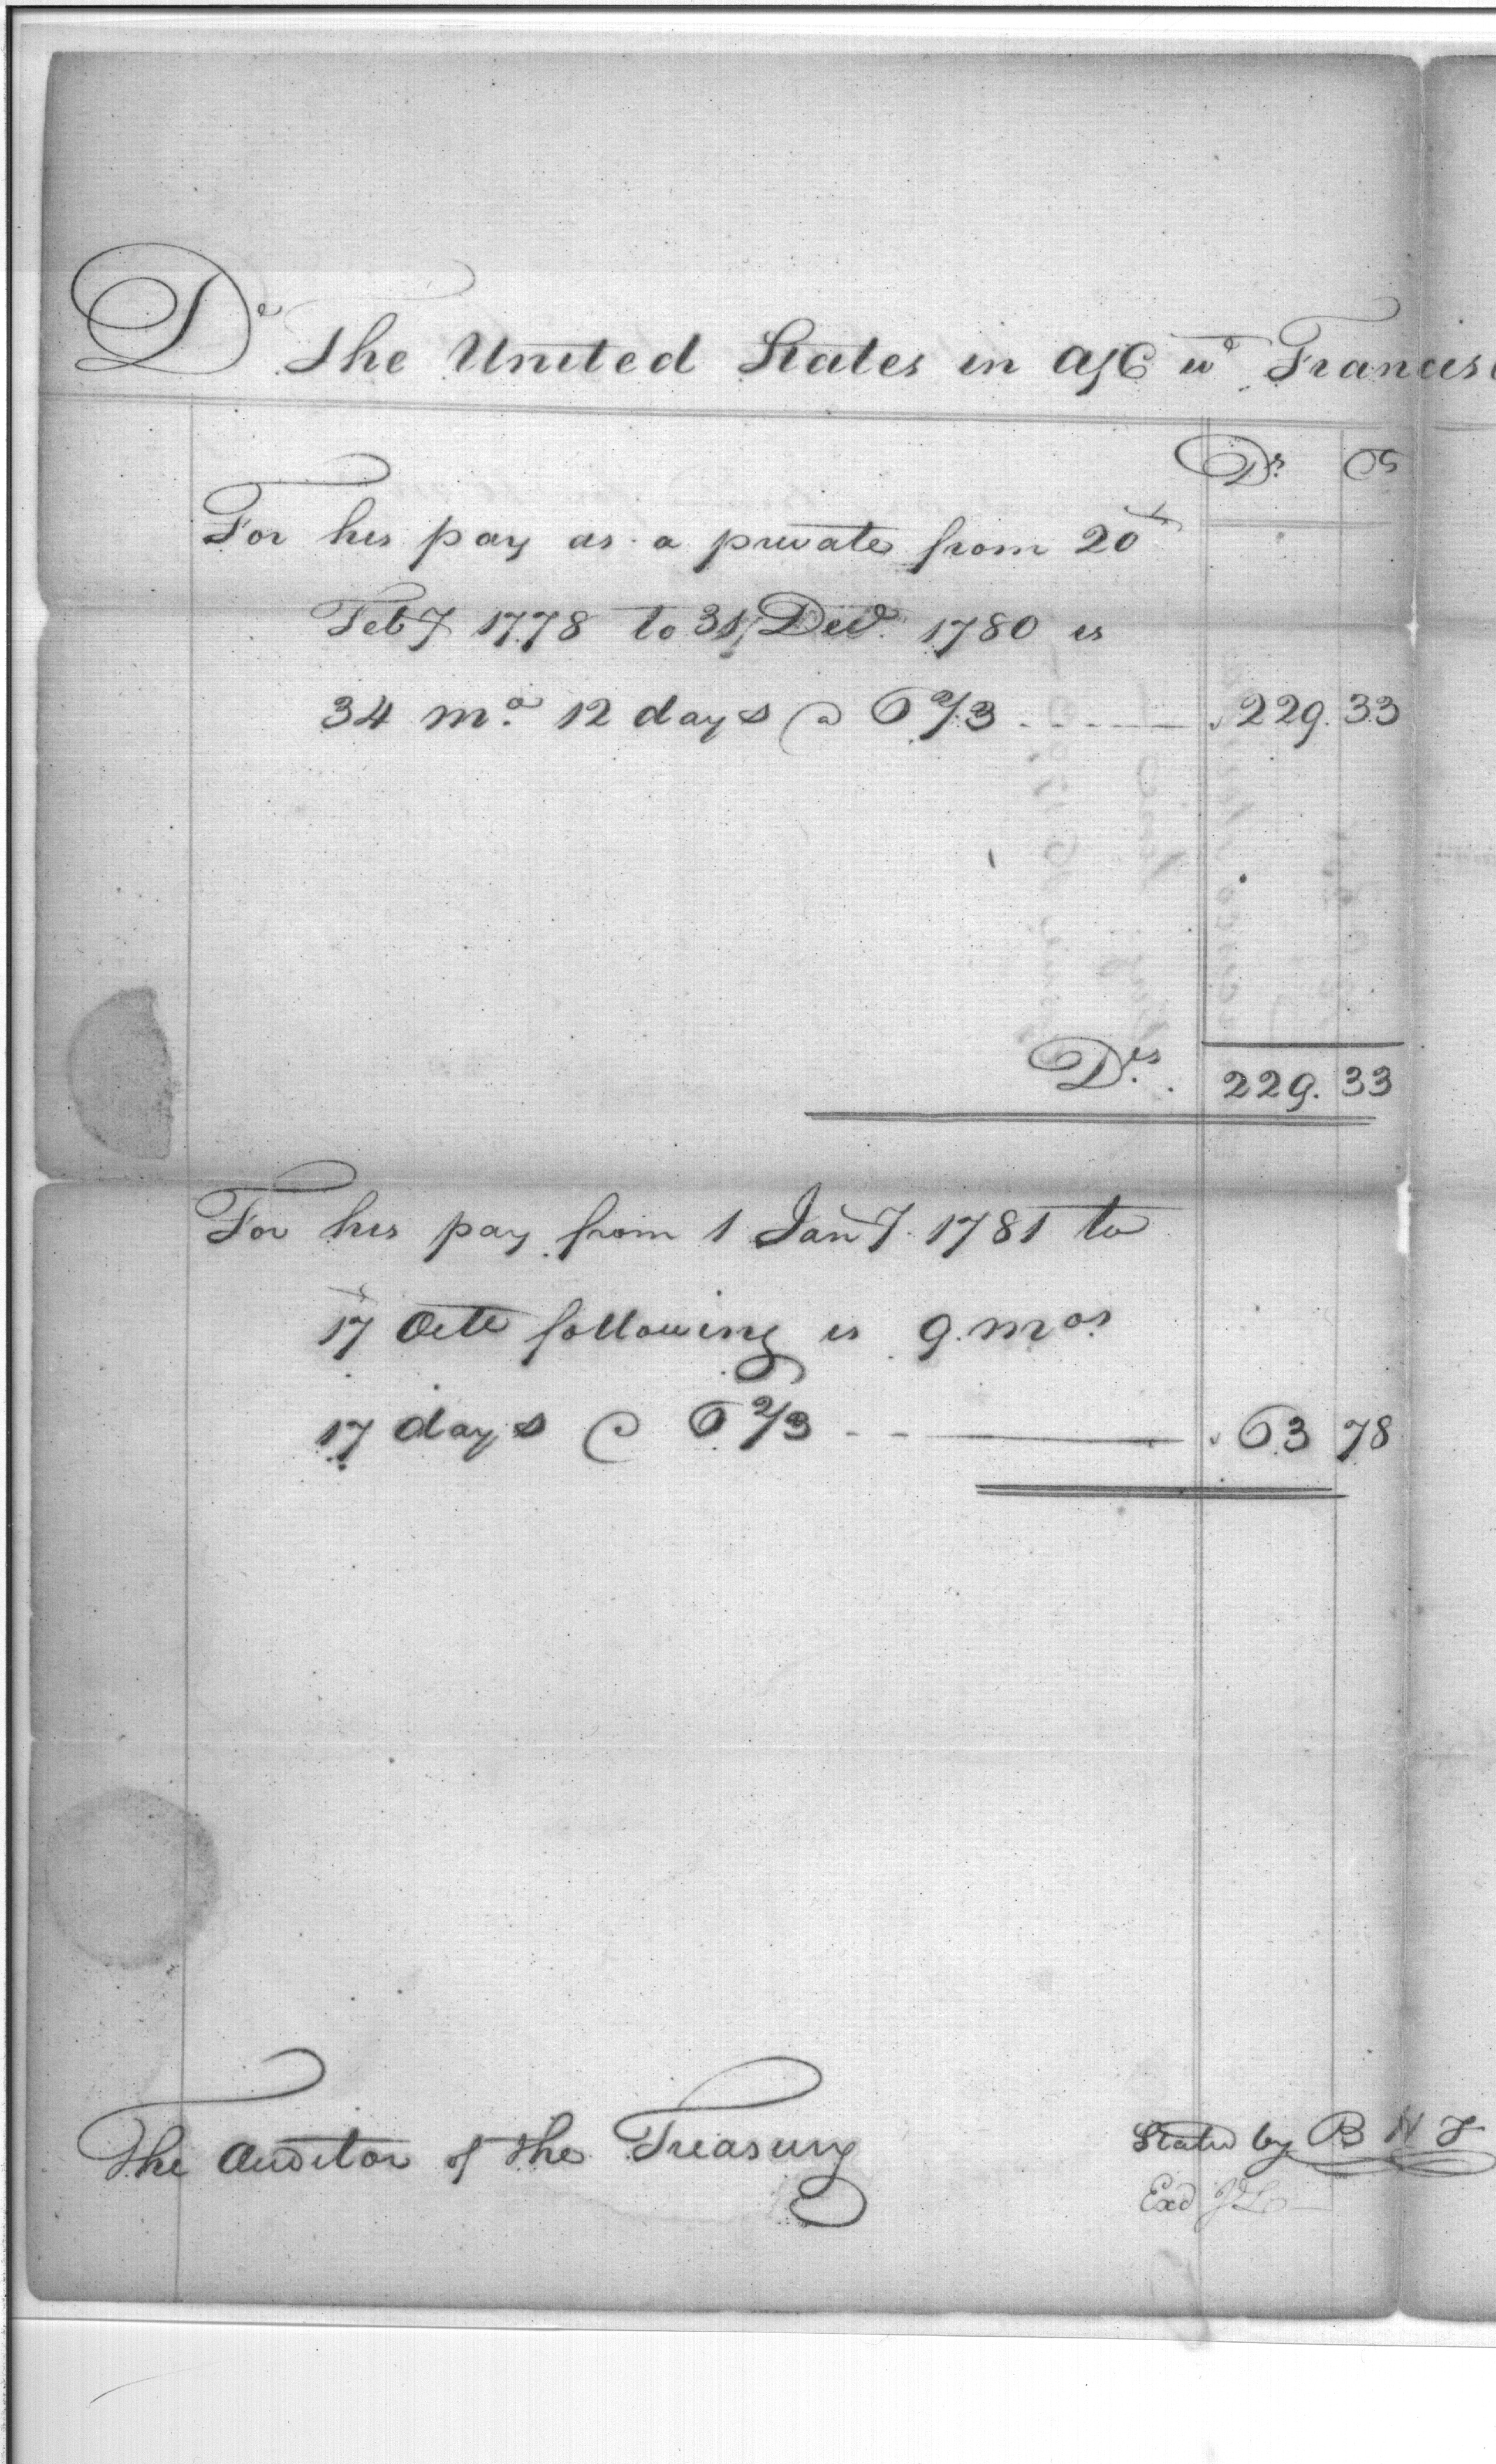 Dr The United States in a/C wth Francis
Drs Cs
For his pay as a private from 20th
Feby 1778 to 31st Decr 1780 is
34 mo. 12 days @ 6 2/3 229.33
Drs. 229.33
For his pay from 1 Jany 1781 to
17th Octr following is 9 mos.
17 days @ 6 2/3 63 78
The Auditor of the Treasury
Stated by B H T
Exd